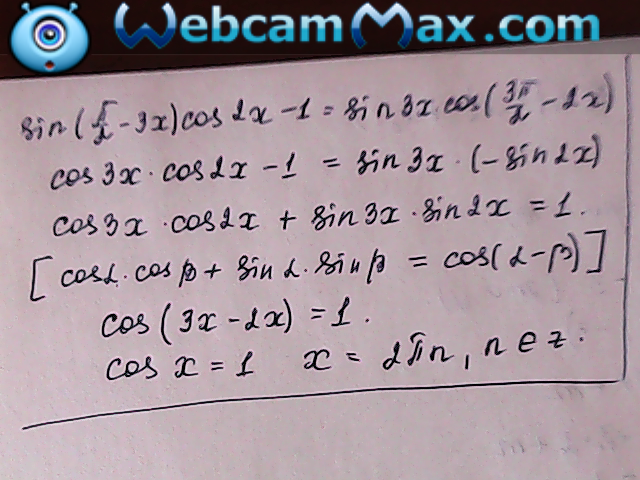 WebcamMax.com
sin(π/2 - 3x)cos 2x - 1 = sin 3x cos(3π/2 - 2x)
cos 3x · cos 2x - 1 = sin 3x · (- sin 2x)
cos 3x · cos 2x + sin 3x · sin 2x = 1.
[cos α · cos β + sin α · sin β = cos(α - β)]
cos(3x - 2x) = 1.
cos x = 1 x = 2πn, n ∈ z.